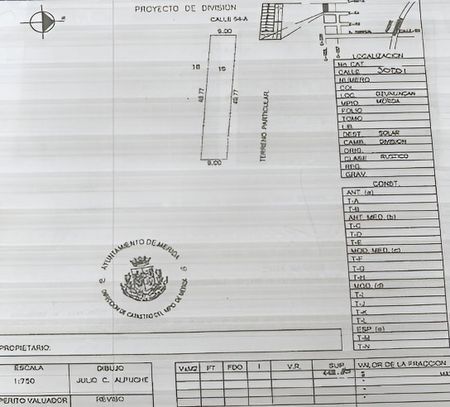 PROYECTO DE DIVISION
CALLE 64-A
9.00
18
19
49.77
49.77
9.00
TERRENO PARTICULAR
LOCALIZACION
No CAT.
CALLE
NUMERO
COL.
LOC.
MPIO MERIDA
FOLIO
TOMO
LIB.
DEST. SOLAR
CAMB. DIVISION
ORIG.
CLASE RUSTICO
REG.
GRAV.
CONST.
ANT. (a)
T-A
T-B
ANT. MED. (b)
T-C
T-D
T-E
MOD. MED. (c)
T-F
T-G
T-H
MOD. (d)
T-I
T-J
T-K
T-L
ESP. (e)
T-M
T-N
AYUNTAMIENTO DE MERIDA
DIRECCION DE CATASTRO DEL MPIO DE MERIDA
PROPIETARIO.
ESCALA
DIBUJO
1:750
JULIO C. ALPUCHE
PERITO VALUADOR
REVISO
VxM2
FT
FDO
I
V.R.
SUP.
VALOR DE LA FRACCION
$